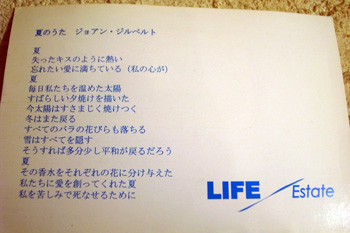 夏のうた　ジョアン・ジルベルト
夏
失ったキスのように熱い
忘れたい愛に満ちている（私の心が）
夏
毎日私たちを温めた太陽
すばらしい夕焼けを描いた
今太陽はすさまじく焼けつく
冬はまた戻る
すべてのバラの花びらも落ちる
雪はすべてを隠す
そうすれば多分少し平和が戻るだろう
夏
その香水をそれぞれの花に分け与えた
私たちに愛を創ってくれた夏
私を苦しみで死なせるために
LIFE / Estate